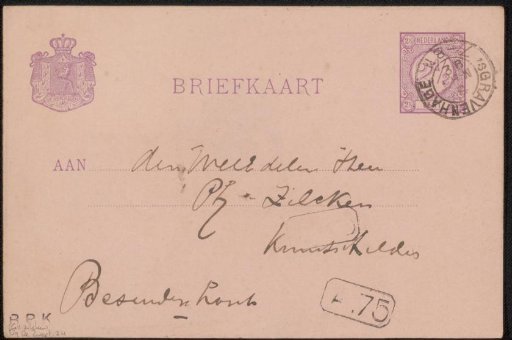 NEDERLAND
'S GRAVENHAGE
BRIEFKAART
AAN den WelEdelen Heer
Ph. Zilcken
Kunstschilder
Bezuidenhout
75
B.P.K.